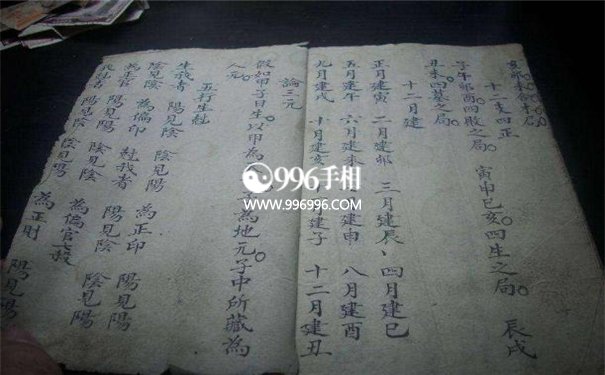 十二支四正
子午卯酉。四敗之局。 寅申巳亥。四生之局。 辰戌
丑未。四墓之局。
十二月建
正月建寅 二月建卯 三月建辰、四月建巳
五月建午 六月建未 月建申 八月建酉
九月建戌 十月建亥 月建子 十二月建丑
論三元
假如甲子日生。以甲為 為地元。子中所藏為
人元。
五行生尅
生我者 陽見陰 陰見陽 為正印 陽見陽
陰見陰 為偏印 尅我者 陽見陰 陰見陽
為正官 陽見陽 陰見陰 為偏官七殺
尅者 陽見陰 陰見陽 為正則 陽見陽
996手相
www.996996.com